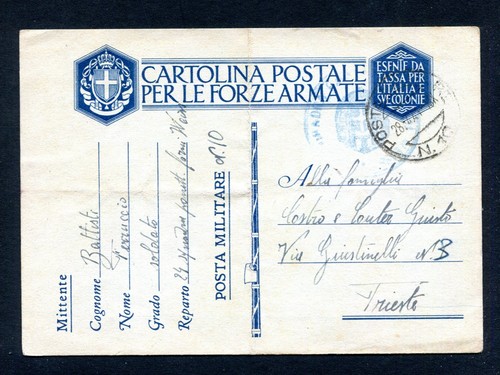 CARTOLINA POSTALE
PER LE FORZE ARMATE
ESENTE DA
TASSA PER
L'ITALIA E
SVE COLONIE
POSTA
N. 10
Mittente
Cognome Battisti
Nome Ferruccio
Grado soldato
Reparto 24
POSTA MILITARE N. 10
Alla famiglia
Giusto
Via Giustinelli N. 3
Trieste